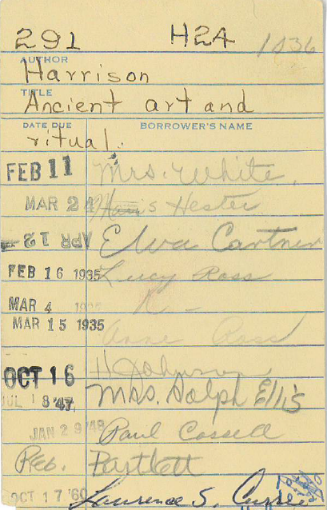 291 H24 1036
AUTHOR
Harrison
TITLE
Ancient art and
DATE DUE BORROWER'S NAME
ritual.
FEB 11 Mrs. White.
MAR 24 Hester
APR 12 Elva Cartner
FEB 16 1935 Lucy Ross
MAR 4
MAR 15 1935 Anne
OCT 16 H Johnson
JUL 18 '47 Mrs. Dolph Ellis
JAN 29 '48 Paul Cassell
Feb. Bartlett
OCT 17 '60 Laurence S. Currie